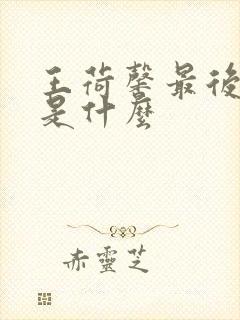 王荷馨最後
是什麼
赤靈芝